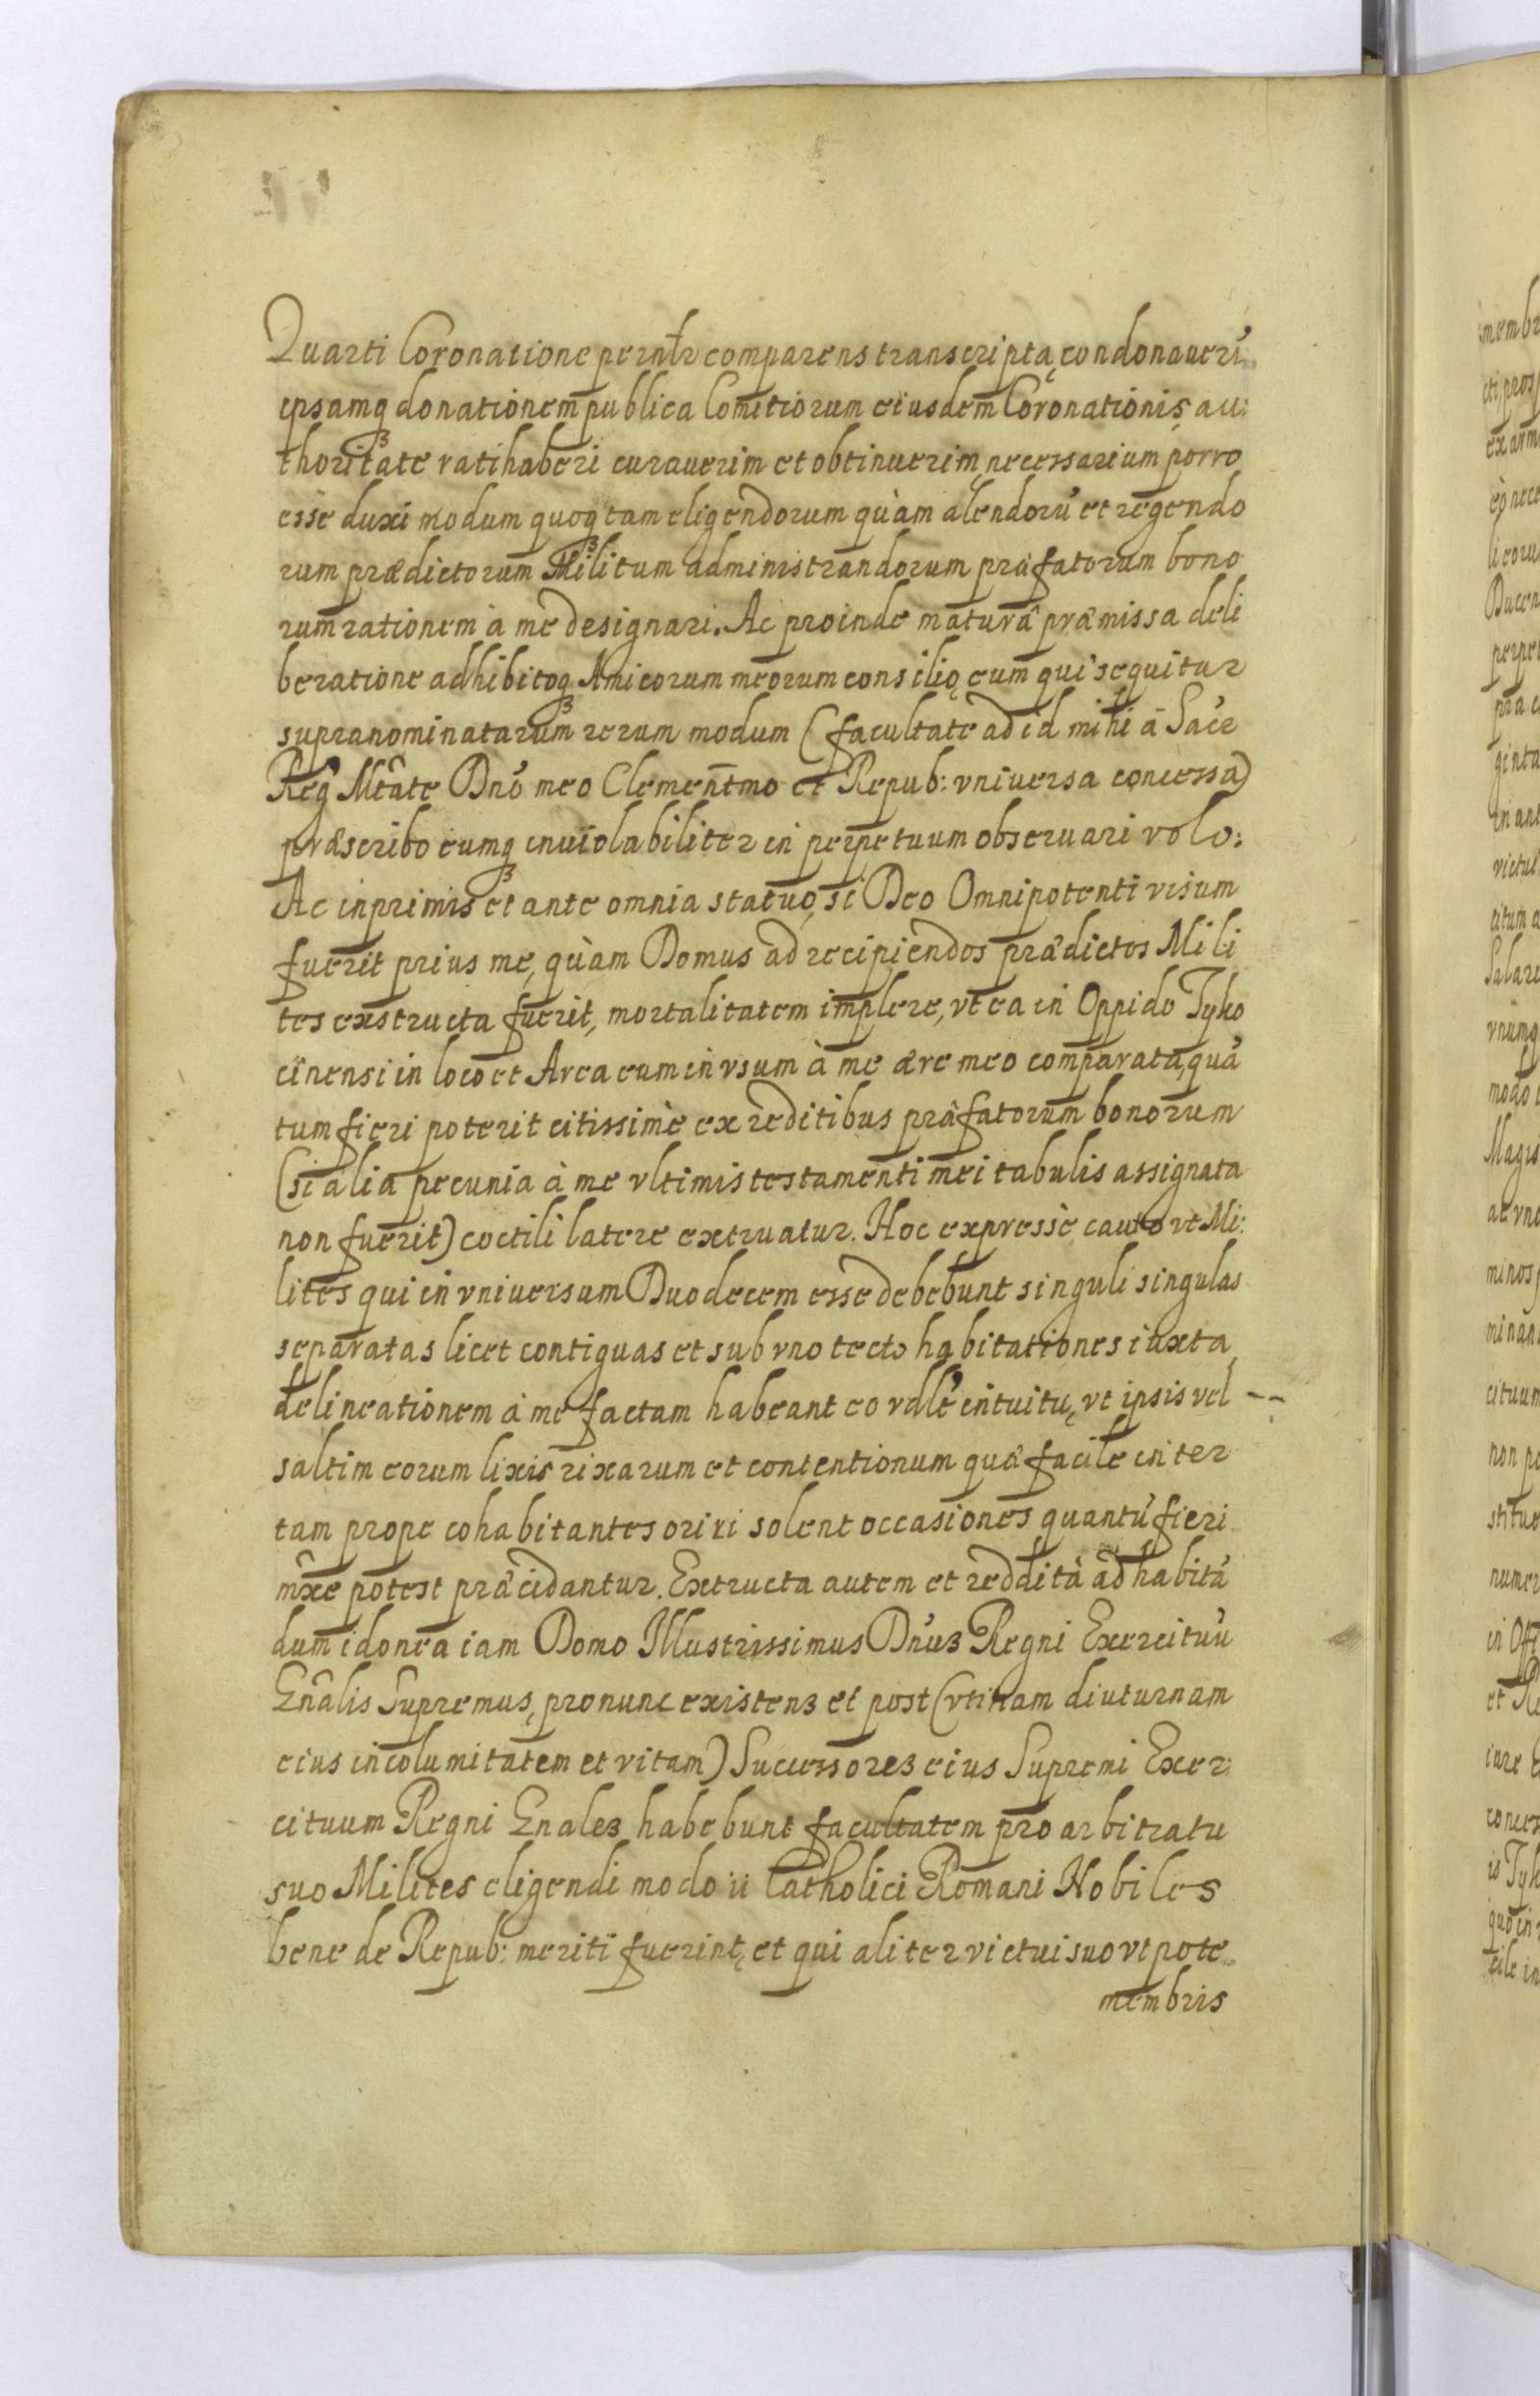 Quarti Coronatione pernłr comparens transcripta, condonauerī
ipsamq3 donationem publica Comitiorum eiusdem Coronationis, au:
thoritate ratihaberi curauerim et obtinuerim, necessarium porro
esse duxi modum quoq3 tam eligendorum quàm alendorū et regendo
rum prædictorum Militum administrandorum præfatorum bono
rum rationem à me designari. Ac proinde maturâ præmissa deli
beratione adhibitoq3 Amicorum meorum consilio, eum qui sequitur
supranominatarum rerum modum (facultate ad id mihi â Sacr
Reg Mtâte Dnō meo Clemen̄tmo et Repub: vniuersa concessa)
præscribo eumq3 inuiolabiliter in perpetuum obseruari volo:
Ac inprimis et ante omnia statuo, si Deo Omnipotenti visum
fuerit prius me, quàm Domus ad recipiendos prædictos Mili
tes exstructa fuerit, mortalitatem implere, vt ea in Oppido Tyko
cinensi in loco et Area eum in vsum à me ære meo comparata, quā
tum fieri poterit citissimè ex reditibus præfatorum bonorum
(si alia pecunia à me vltimis testamenti mei tabulis assignata
non fuerit) coctili latere extruatur. Hoc expressè cauto vt Mi:
lites qui in vniuersum Duodecem esse debebunt singuli singulas
separatas licet contiguas et sub vno tecto habitationes iuxta
delineationem à me factam habeant eo vdlē intuitu, vt ipsis vel --
saltim eorum lixis rixarum et contentionum quæ facile inter
tam prope cohabitantes oriri solent occasiones quantū fieri
mxe potest præcidantur. Extructa autem et redditâ ad habitā
dum idonea iam Domo Illustrissimus Dnus Regni Exercituū
Gnâlis Supremus, pro nunc existens et post (vtinam diuturnam
eius incolumitatem et vitam) Successores eius Supremi Exer:
cituum Regni Gnales habebunt facultatem pro arbitratu
suo Milites eligendi modo ii Catholici Romani Nobiles
bene de Repub: meriti fuerint, et qui aliter victui suo vtpote
membris